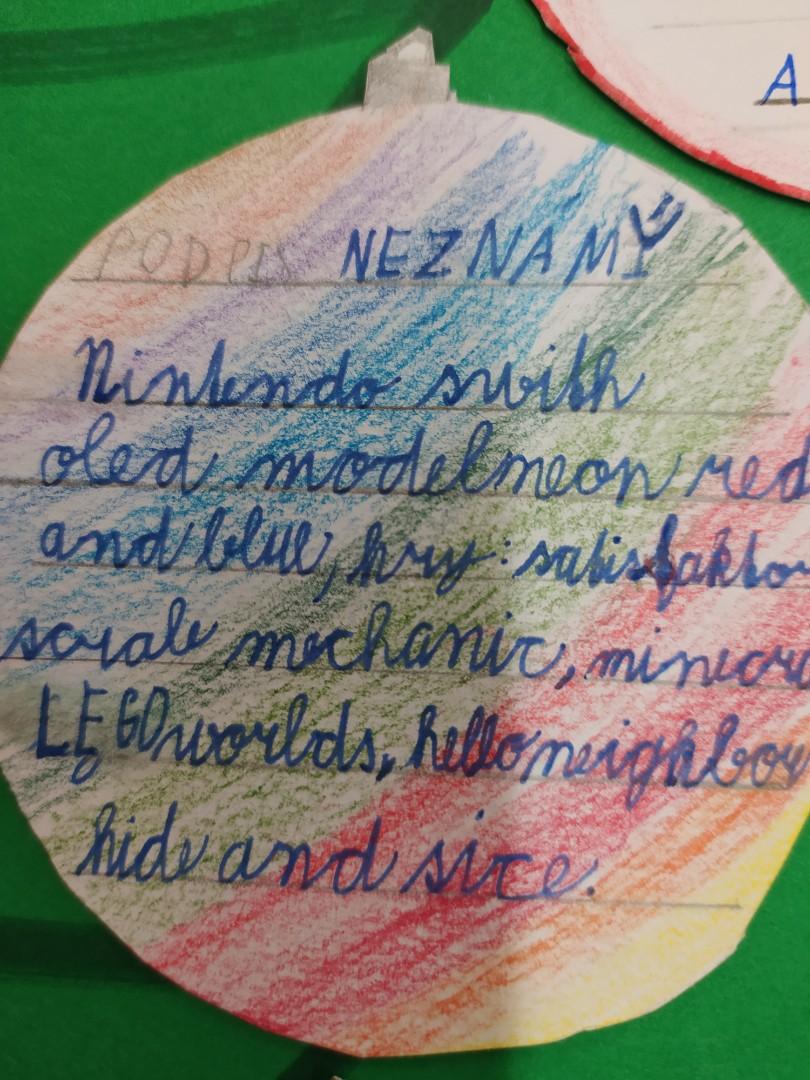 A
PODPIS NEZNAMI
Nintendo swith
oled modelmeon red
and blue, hry: satisfakto
scrale mechanic, minecra
LEGO worlds, hello neighbou
hide and sice.